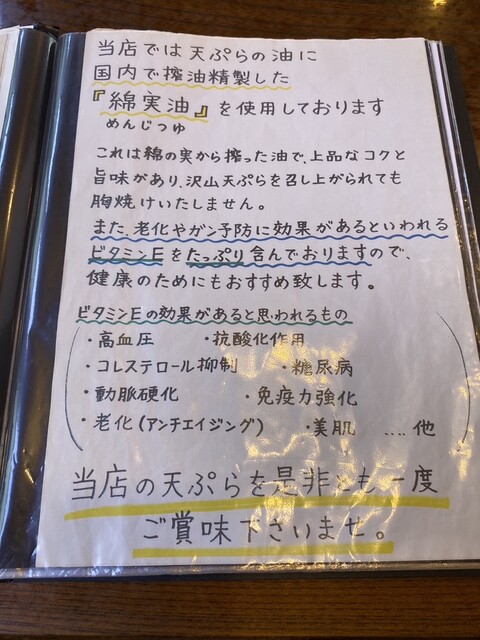 当店では天ぷらの油に
国内で搾油精製した
『綿実油』を使用しております
めんじつゆ
これは綿の実から搾った油で、上品なコクと
旨味があり、沢山天ぷらを召し上がられても
胸焼けいたしません。
また、老化やガン予防に効果があるといわれる
ビタミンEをたっぷり含んでおりますので、
健康のためにもおすすめ致します。
ビタミンEの効果があると思われるもの
・高血圧 ・抗酸化作用
・コレステロール抑制 ・糖尿病
・動脈硬化 ・免疫力強化
・老化(アンチエイジング) ・美肌 ....他
当店の天ぷらを是非とも一度
ご賞味下さいませ。